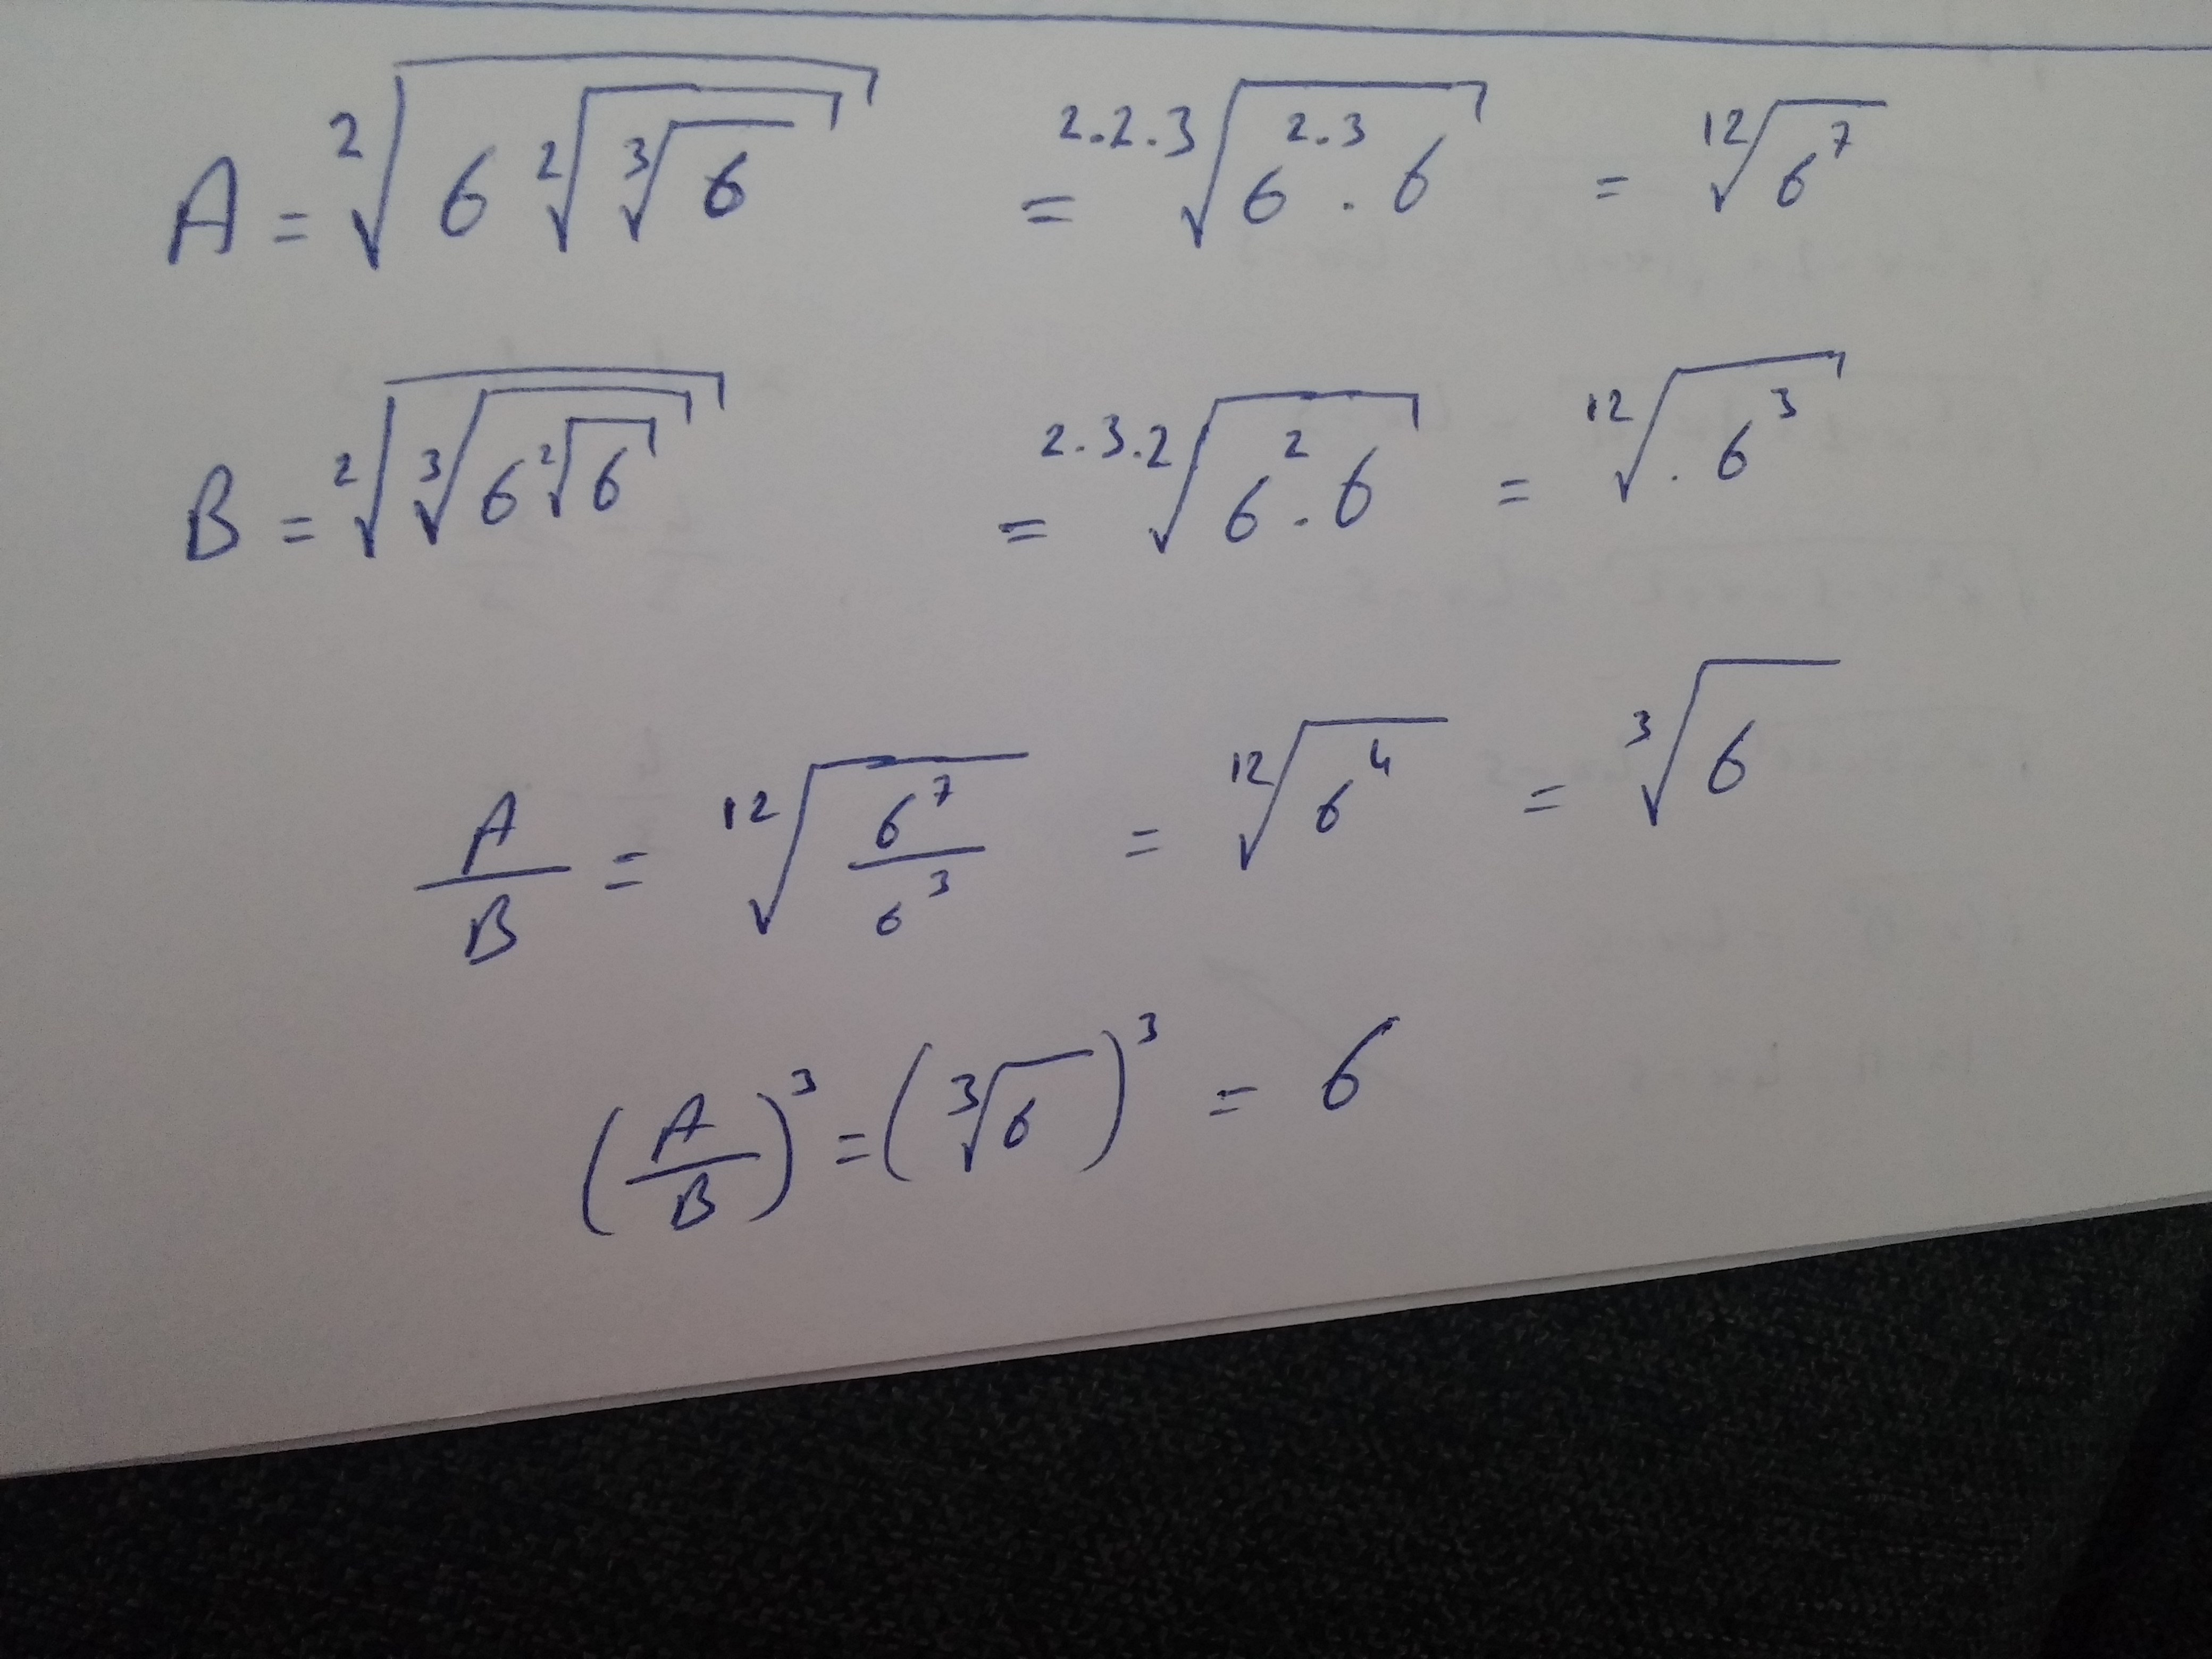 A = ²√(6 ²√(³√6)) = ²·²·³√(6²·³ · 6) = ¹²√(6⁷)
B = ²√(³√(6 ²√6)) = ²·³·²√(6² · 6) = ¹²√(· 6³)
A/B = ¹²√(6⁷/6³) = ¹²√(6⁴) = ³√6
(A/B)³ = (³√6)³ = 6